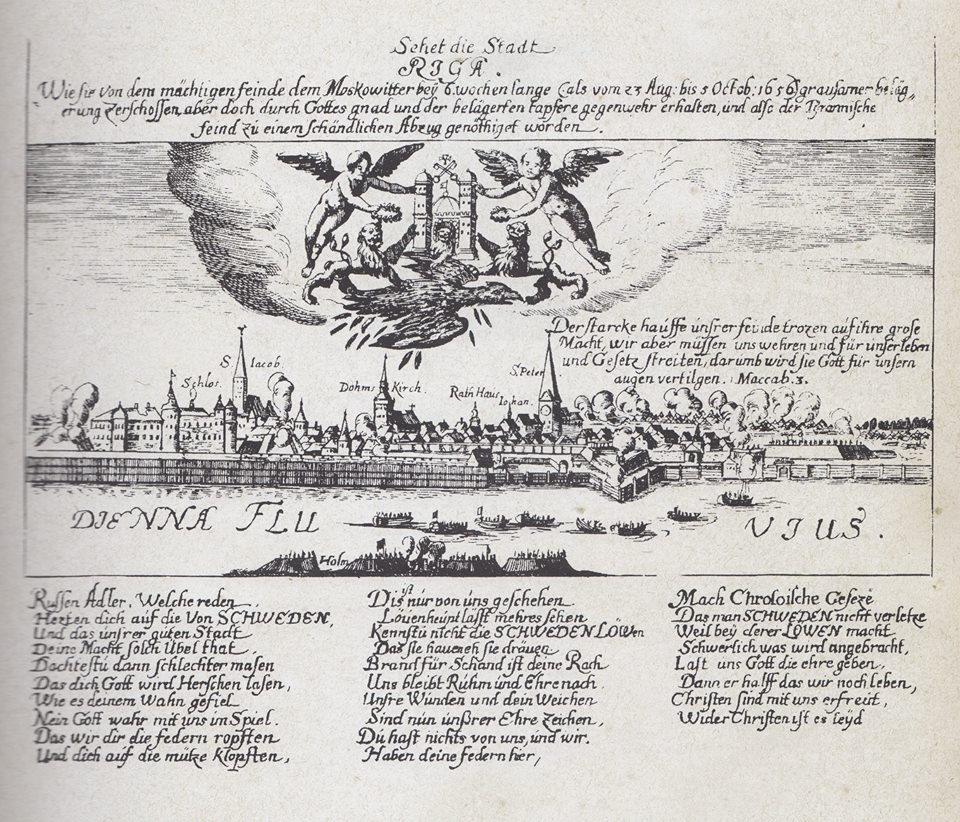 Sehet die Stadt
RIGA.
Wie sie von dem mächtigen feinde dem Moskowitter bey 6. wochen lange (als vom 23 Aug: bis 5 Octob: 1656) grausamer beläg„
erung zerschossen, aber doch durch Gottes gnad und der belägerten tapfere gegenwehr erhalten, und also der Tyrannische
feind zu einem schändlichen Abzug genöthiget worden.
Der starcke hauffe unsrer feinde trozen auf ihre grose
Macht, wir aber müssen uns wehren und für unser leben
und Gesetz streiten, darumb wird sie Gott für unsern
augen vertilgen. 1 Maccab. 3.
S. Iacob.
Schlos.
Dohms Kirch.
Rath Haus
Iohan.
S. Peter
DIENNA FLU VIUS.
Holm
Russen Adler, Welche reden
Hezten dich auf die Von SCHWEDEN,
Und das unsrer guten Stadt
Deine Macht solch Übel that,
Dachtestu dann schlechter masen
Das dich Gott wird Herschen lasen,
Wie es deinem Wahn gefiel
Nein Gott wahr mit uns im Spiel.
Das wir dir die federn ropften
Und dich auf die mütze klopften,
Dis ist nur von uns geschehen
Löuenheupt lässt mehres sehen
Kennstu nicht die SCHWEDEN LÖWen
Das sie haueneh sie dräuen
Brand für Schand ist deine Rach
Uns bleibt Ruhm und Ehre nach.
Unsre Wunden und dein Weichen
Sind nun unßrer Ehre zeichen,
Du hast nichts von uns, und wir.
Haben deine federn hier,
Mach Gesezε
Das man SCHWEDEN nicht verletze
Weil bey derer LÖWEN macht
Schwerlich was wird angebracht,
Last uns Gott die ehre geben,
Dann er halff das wir noch leben,
Christen sind mit uns erfreut,
Wider Christen ist es leyd